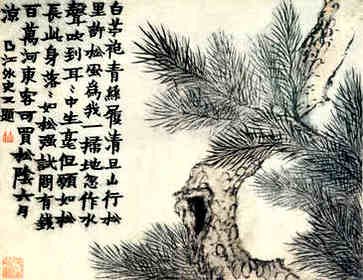 白苧袍青絲履清旦山行松
里許松風為我一掃地忽作水
聲吹到耳〻中生毫但願如松
長此身落〻如松強試問有錢
百萬河東客可買松陰六月
涼 江外史 題